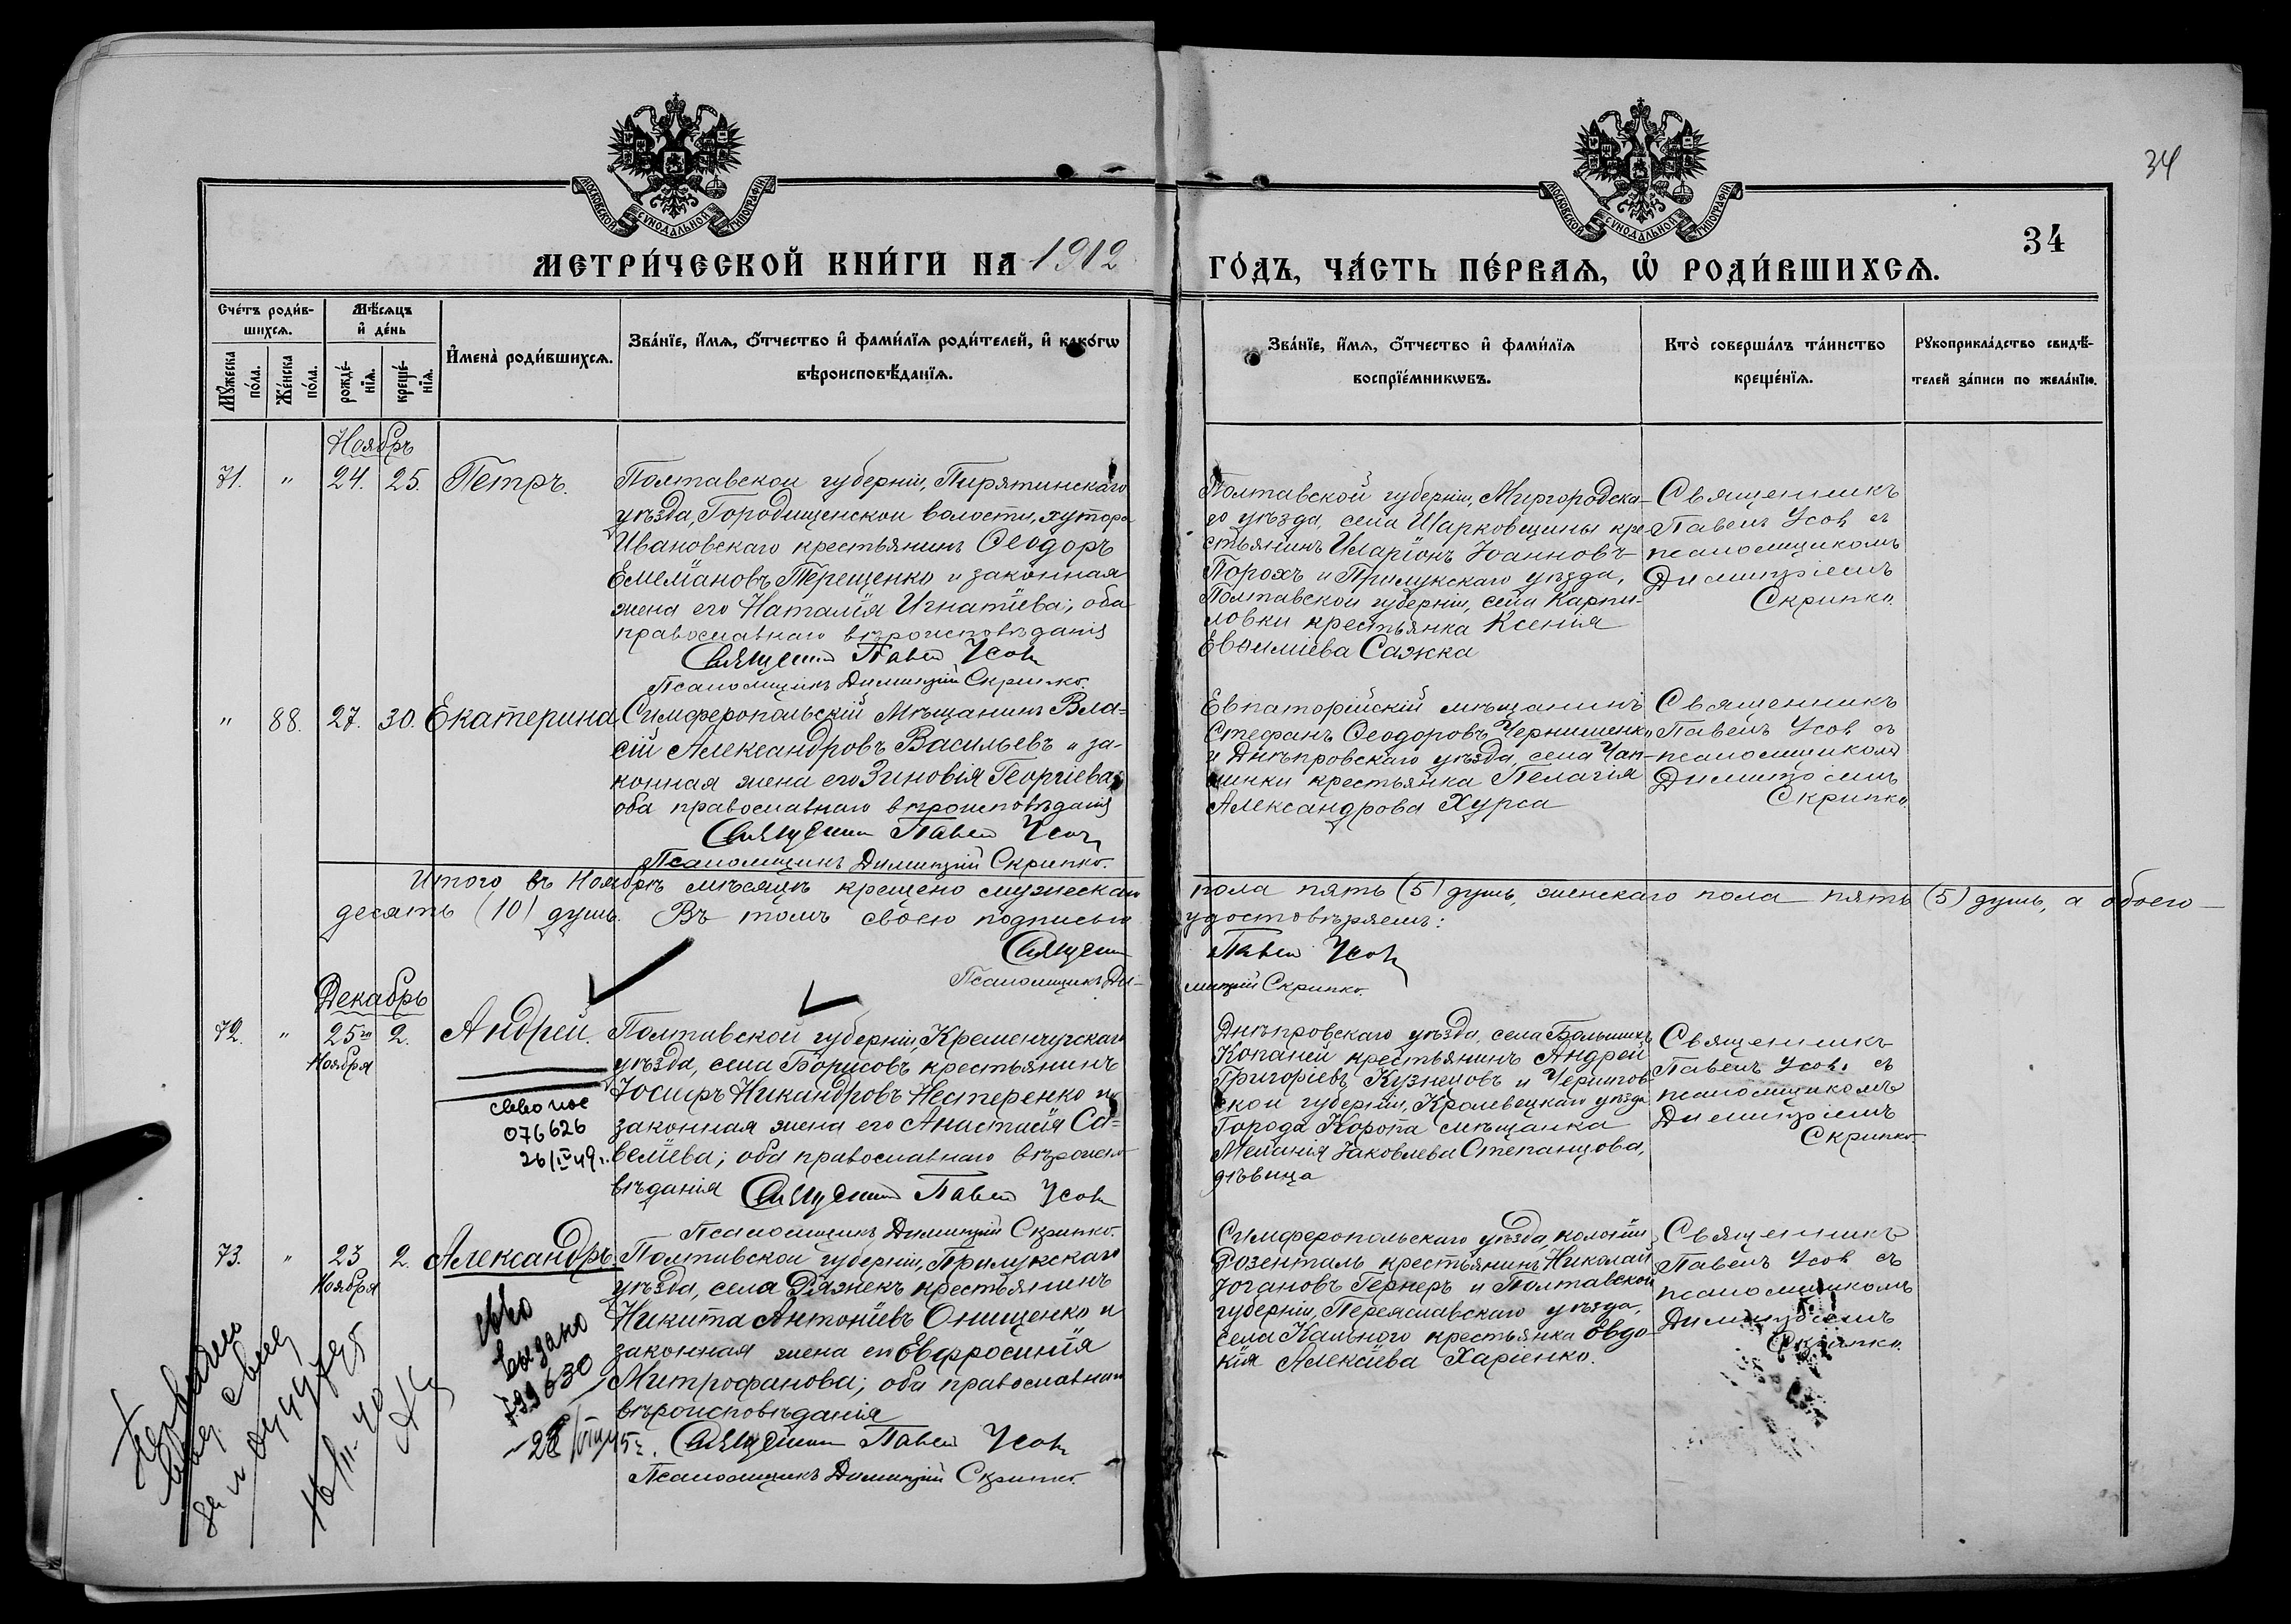 34
МОСКОВСКОЙ СѴНОДАЛЬНОЙ ТИПОГРАФІИ
МОСКОВСКОЙ СѴНОДАЛЬНОЙ ТИПОГРАФІИ
34
МЕТРИ́ЧЕСКОЙ КНИ́ГИ НА 1912
ГО́ДЪ, ЧА́СТЬ ПЕ́РВАѦ, Ѡ҆ РОДИ́ВШИХСѦ.
Сче́тъ роди́в-
шихсѧ.
Мѣ́сѧцъ
и҆ де́нь
Мꙋ́жеска
по́ла.
Же́нска
по́ла.
рожде́-
нїѧ.
креще́-
нїѧ.
И҆мена̀ роди́вшихсѧ.
Зва́нїе, и҆́мѧ, ѻ҆́тчество и҆ фами́лїѧ роди́телей, и҆ како́гѡ
вѣроисповѣ́данїѧ.
Зва́нїе, и҆́мѧ, ѻ҆́тчество и҆ фами́лїѧ
воспрїе́мникѡвъ.
Кто̀ соверша́лъ та́инство
креще́нїѧ.
Рꙋкоприкла́дство свидѣ́-
телей за́писи по жела́нїю.
Ноябрь
71. " 24. 25. Петръ.
Полтавской губерніи, Пирятинскаго
уѣзда, Городищенской волости, хутора
Ивановскаго крестьянинъ Ѳеодоръ
Емеліановъ Терещенко и законная
жена его Наталія Игнатіева; оба
православнаго вѣроисповѣданія
Священникъ Павелъ Усовъ
Псаломщикъ Димитрій Скрипко.
Полтавской губерніи, Миргородска-
го уѣзда, села Шарковщины кре-
стьянинъ Иларіонъ Іоанновъ
Порохъ и Прилукскаго уѣзда,
Полтавской губерніи, села Карпи-
ловки крестьянка Ксенія
Евѳиміева Сажка
Священникъ
Павелъ Усовъ съ
псаломщикомъ
Димитріемъ
Скрипко.
" 88. 27. 30. Екатерина
Симферопольскій мѣщанинъ Вла-
сій Александровъ Васильевъ и за-
конная жена его Зиновія Георгіева;
оба православнаго вѣроисповѣданія
Священникъ Павелъ Усовъ
Псаломщикъ Димитрій Скрипко.
Евпаторійскій мѣщанинъ
Стефанъ Ѳеодоровъ Чернишенко
и Днѣпровскаго уѣзда, села Чап-
линки крестьянка Пелагія
Александрова Хурса
Священникъ
Павелъ Усовъ съ
псаломщикомъ
Димитріемъ
Скрипко.
Итого въ Ноябрѣ мѣсяцѣ крещено мужескаго
пола пять (5) душъ, женскаго пола пять (5) душъ, а обоего
десять (10) душъ. Въ томъ своею подписью
удостовѣряемъ:
Священникъ
Павелъ Усовъ
Псаломщикъ Ди-
митрій Скрипко.
Декабрь
72. " 25го 2. Андрей.
Ноября
Полтавской губерніи, Кременчугскаго
уѣзда, села Борисовъ крестьянинъ
Іосифъ Никандровъ Нестеренко и
законная жена его Анастасія Са-
веліева; оба православнаго вѣроиспо-
вѣданія Священникъ Павелъ Усовъ
Псаломщикъ Димитрій Скрипко.
076626
26/IV 49г.
Днѣпровскаго уѣзда, села Большихъ
Копаней крестьянинъ Андрей
Григоріевъ Кузнецовъ и Чернигов-
ской губерніи, Кролевецкаго уѣзда
Города Коропа мѣщанка
Меланія Іаковлева Степанцова,
дѣвица
Священникъ
Павелъ Усовъ съ
псаломщикомъ
Димитріемъ
Скрипко.
73. " 23 2. Александръ.
Ноября
Полтавской губерніи, Прилукскаго
уѣзда, села Ряжекъ крестьянинъ
Никита Антоніевъ Онищенко и
законная жена его Евфросинія
Митрофанова; оба православнаго
вѣроисповѣданія
Священникъ Павелъ Усовъ
Псаломщикъ Димитрій Скрипко.
св-во
выдано
Симферопольскаго уѣзда, колоніи
Розенталь крестьянинъ Николай
Іогановъ Гернеръ и Полтавской
губерніи, Переяславскаго уѣзда,
села Кального крестьянка Евдо-
кія Алексіева Харіенко.
Священникъ
Павелъ Усовъ съ
псаломщикомъ
Димитріемъ
Скрипко.